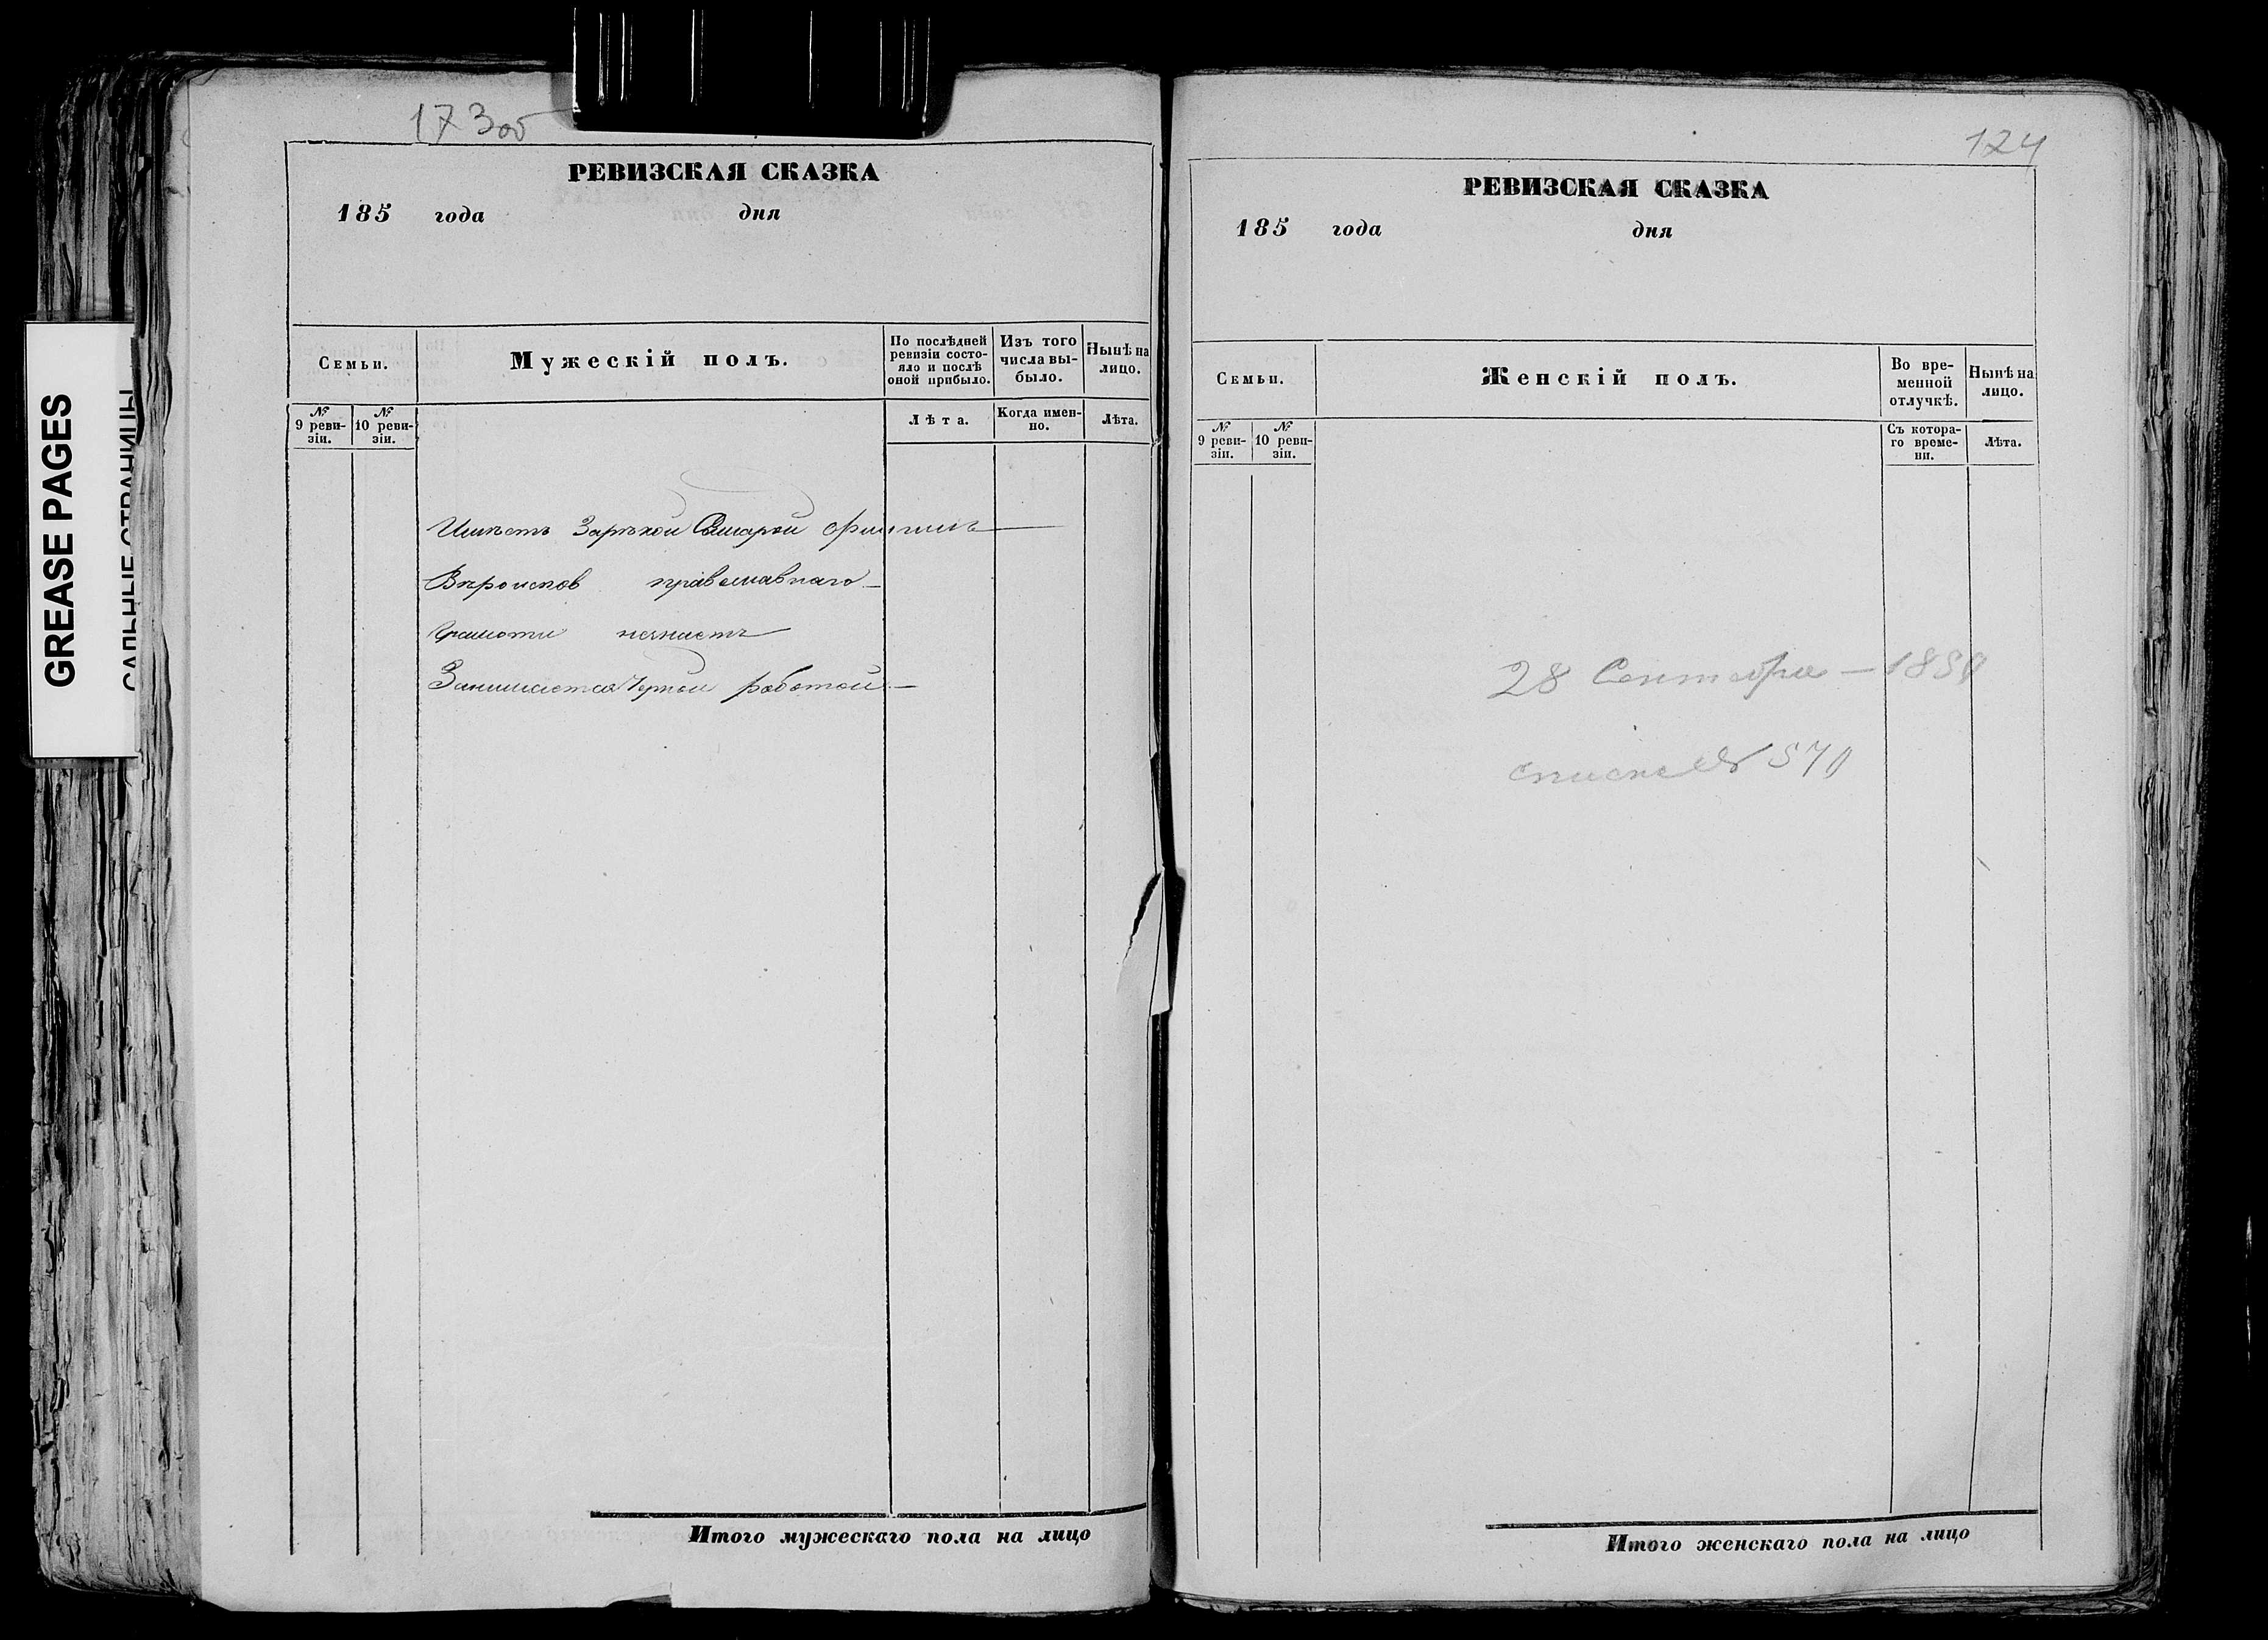 GREASE PAGES
САЛЬНЫЕ СТРАНИЦЫ
173об
РЕВИЗСКАЯ СКАЗКА
185 года дня
Семьи.
Мужескій полъ.
По послѣдней ревизіи состо-
яло и послѣ
оной прибыло.
Изъ того
числа вы-
было.
Нынѣ на
лицо.
№ 9 реви-
зіи.
№ 10 реви-
зіи.
Лѣта.
Когда имен-
но.
Лѣта.
Имѣетъ
Вѣроисков православнаго
Грамоти незнаетъ
Занимается Черной работой
Итого мужескаго пола на лицо
124
РЕВИЗСКАЯ СКАЗКА
185 года дня
Семьи.
Женскій полъ.
Во вре-
менной
отлучкѣ.
Нынѣ на
лицо.
№ 9 реви-
зіи.
№ 10 реви-
зіи.
Съ котора-
го време-
ни.
Лѣта.
28 Сентября —
№ 570
Итого женскаго пола на лицо